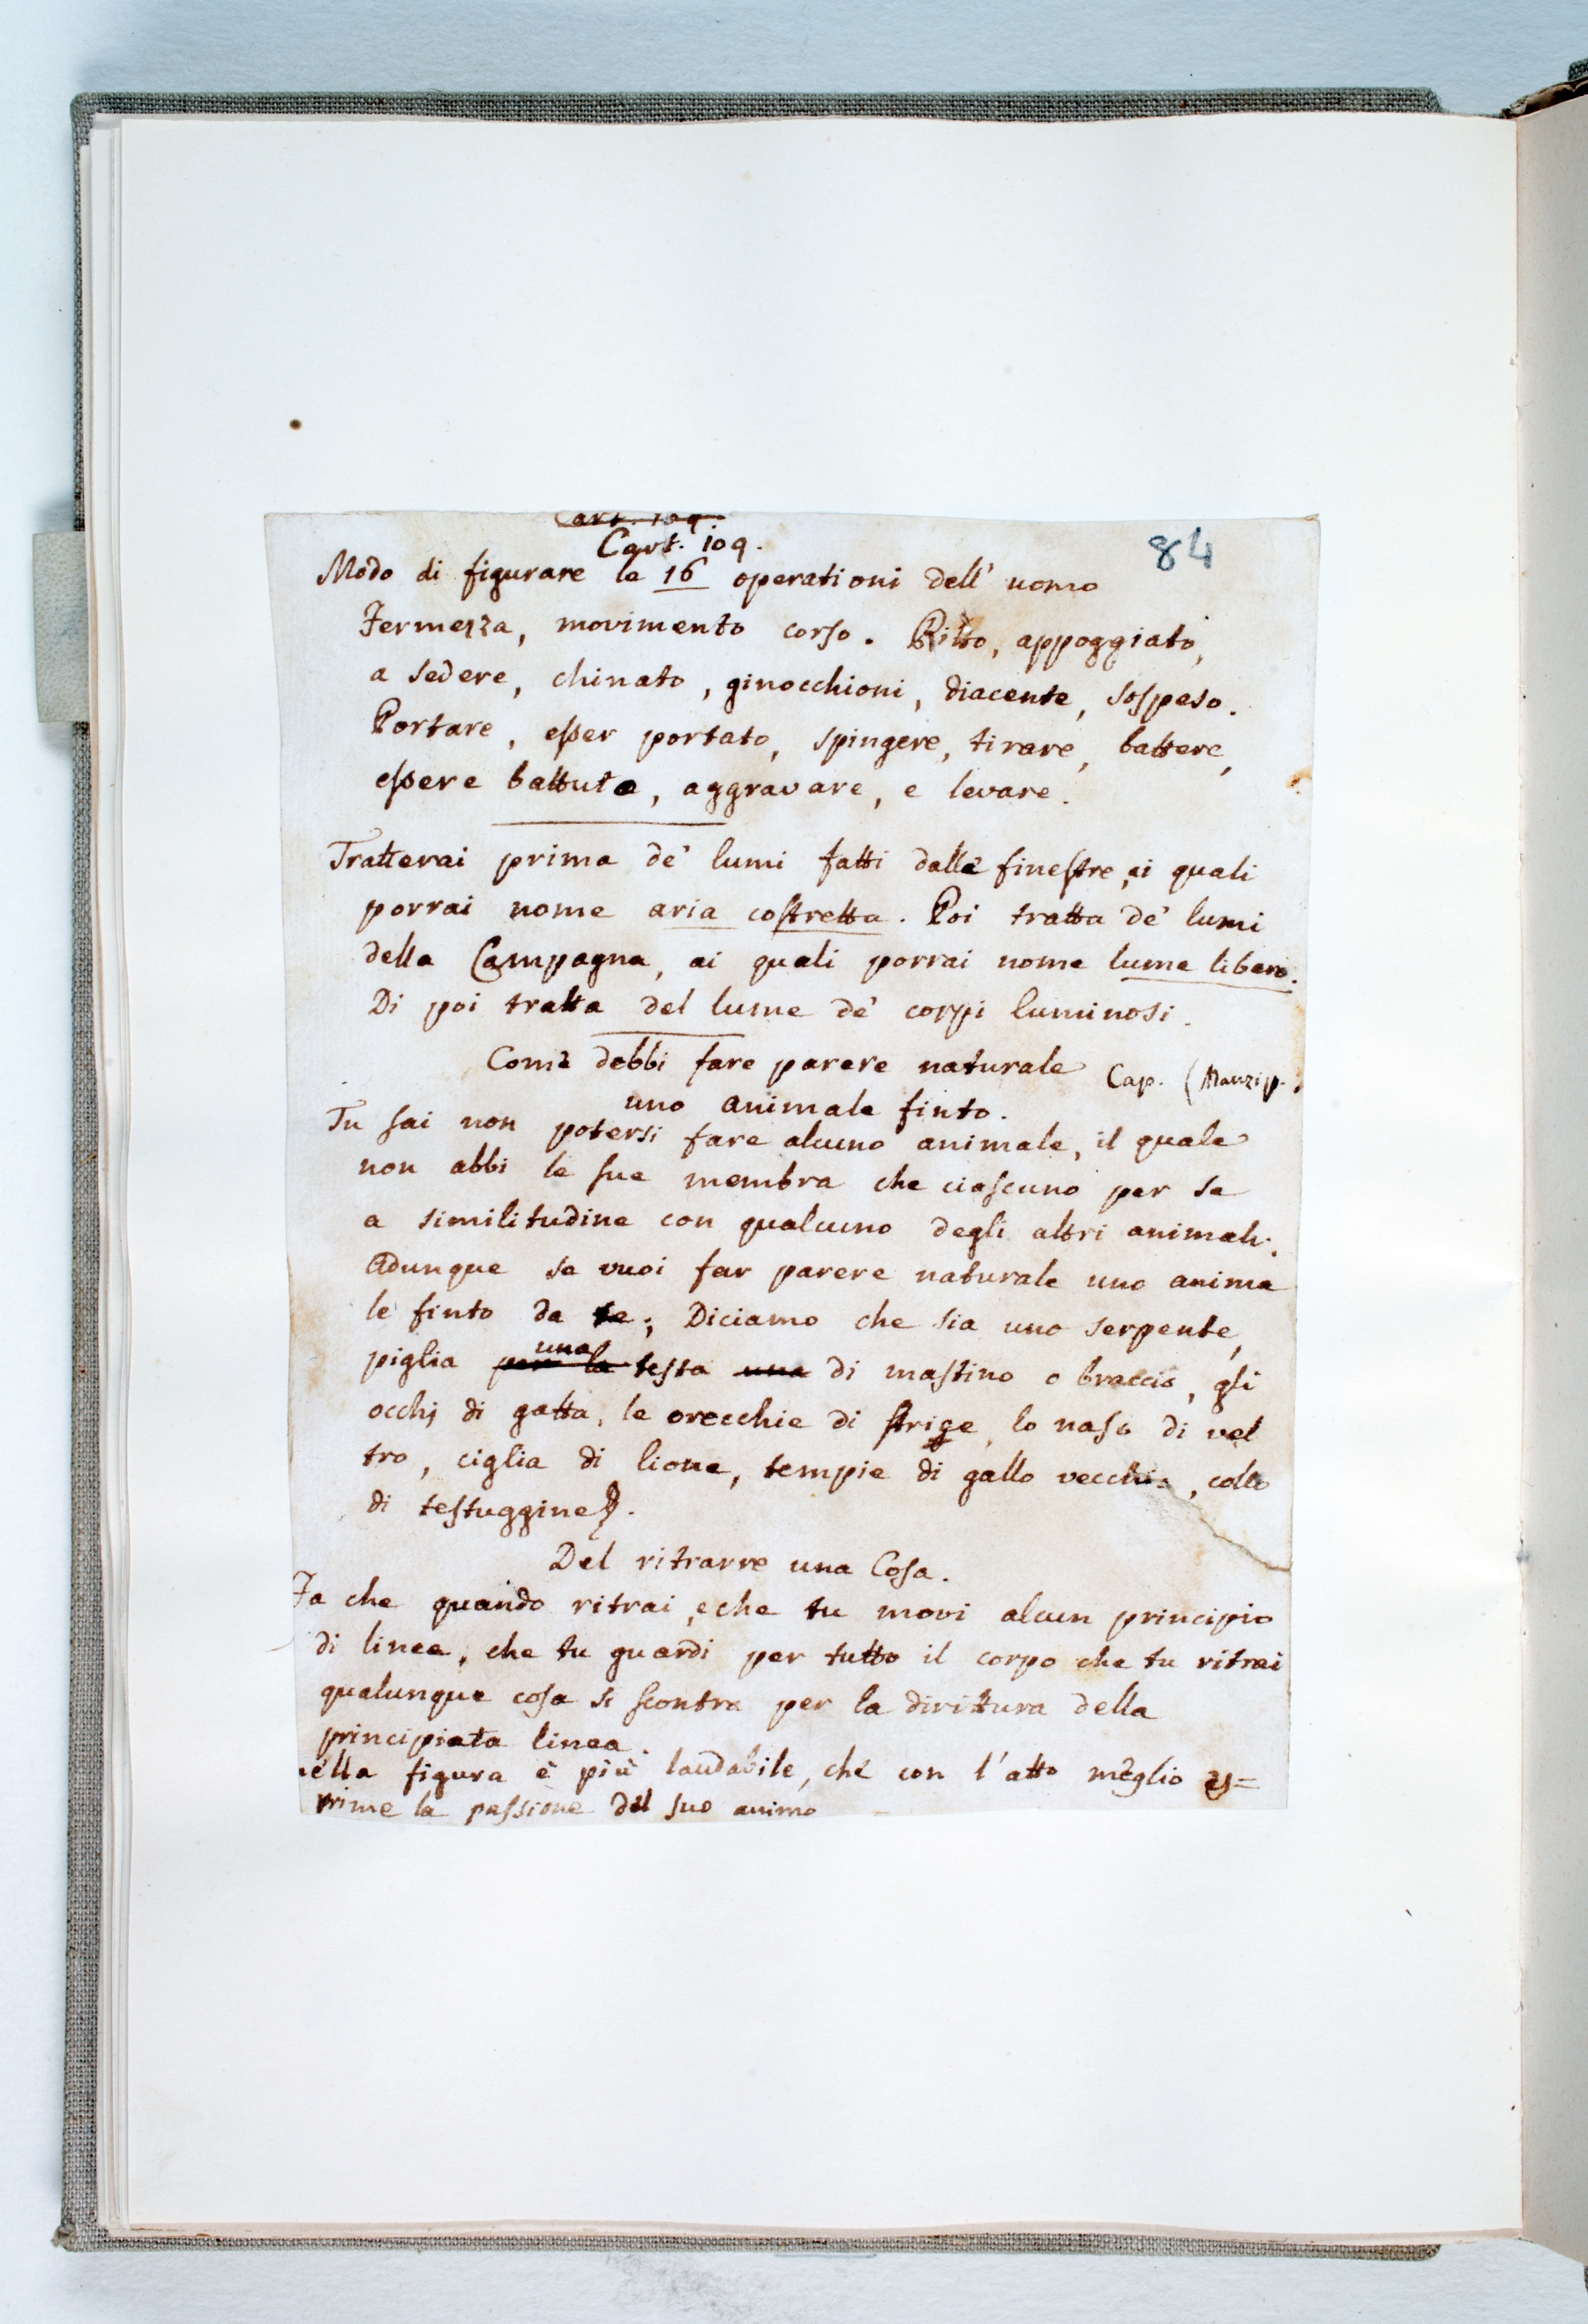 Cart. 109.
Cart. 109.
84
Modo di figurare le 16 operationi dell' uomo
Fermezza, movimento corso. Ritto, appoggiato,
a sedere, chinato, ginocchioni, diacente, sospeso.
Portare, esser portato, spingere, tirare, battere,
essere battuto, aggravare, e levare.
Tratterai prima de' lumi fatti dalle finestre, ai quali
porrai nome aria costretta. Poi tratta de' lumi
della Campagna, ai quali porrai nome lume libero.
Di poi tratta del lume de' corpi luminosi.
Come debbi fare parere naturale Cap. (Manzi p.
uno animale finto.
Tu sai non potersi fare alcuno animale, il quale
non abbi le sue membra che ciascuno per se
a similitudine con qualcuno degli altri animali.
Adunque se vuoi far parere naturale uno anima
le finto da te; Diciamo che sia uno serpente,
piglia per la una testa una di mastino o bracco, gli
occhi di gatta, le orecchie di strige, lo naso di vel
tro, ciglia di lione, tempie di gallo vecchio, collo
di testuggine.
Del ritrarre una Cosa.
Fa che quando ritrai, e che tu movi alcun principio
di linea, che tu guardi per tutto il corpo che tu ritrai
qualunque cosa si scontra per la dirittura della
principiata linea.
uella figura è più laudabile, che con l'atto meglio es=
prime la passione del suo animo